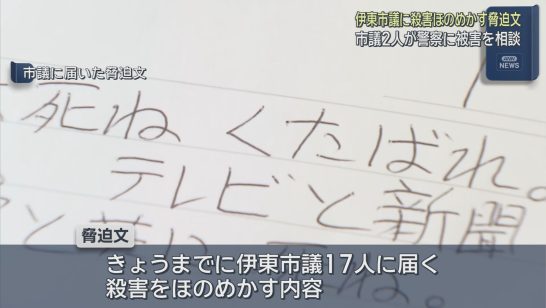 伊東市議に殺害ほのめかす脅迫文
市議2人が警察に被害を相談
NEWS
市議に届いた脅迫文
死ね くたばれ。
テレビと新聞
と
ね。
脅迫文
きょうまでに伊東市議17人に届く
殺害をほのめかす内容